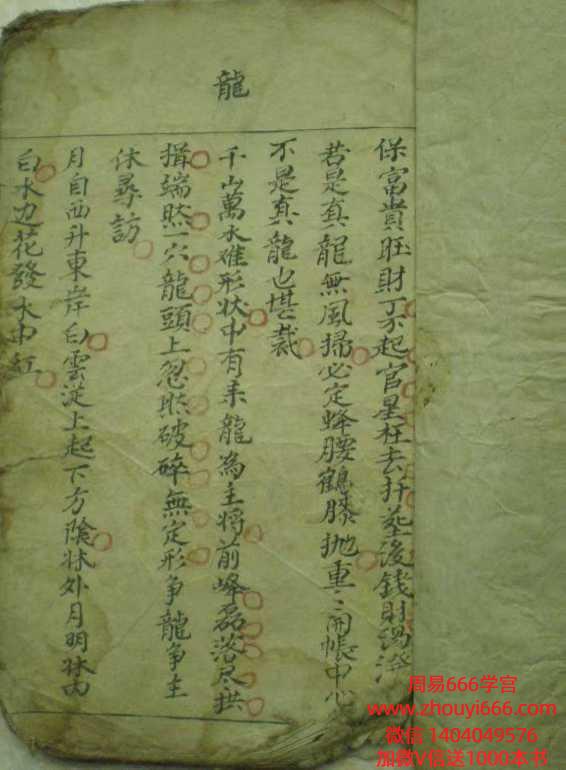 龍
保富貴旺財丁不起官星枉去扦塟後錢財湯潑
若是真龍無風掃必定蜂腰鶴膝拋重〻開帳中心
不是真龍也堪裁
千山萬水難形狀中有来龍為主將前峰磊落尽拱
揖端然一穴龍頭上忽然破碎無定形争龍争主
休尋訪
月自西升東岸白雲淀上起下方陰林外月明林内
白水边花發水中紅
周易666学宫
www.zhouyi666.com
微信 1404049576
加微V信送1000本书